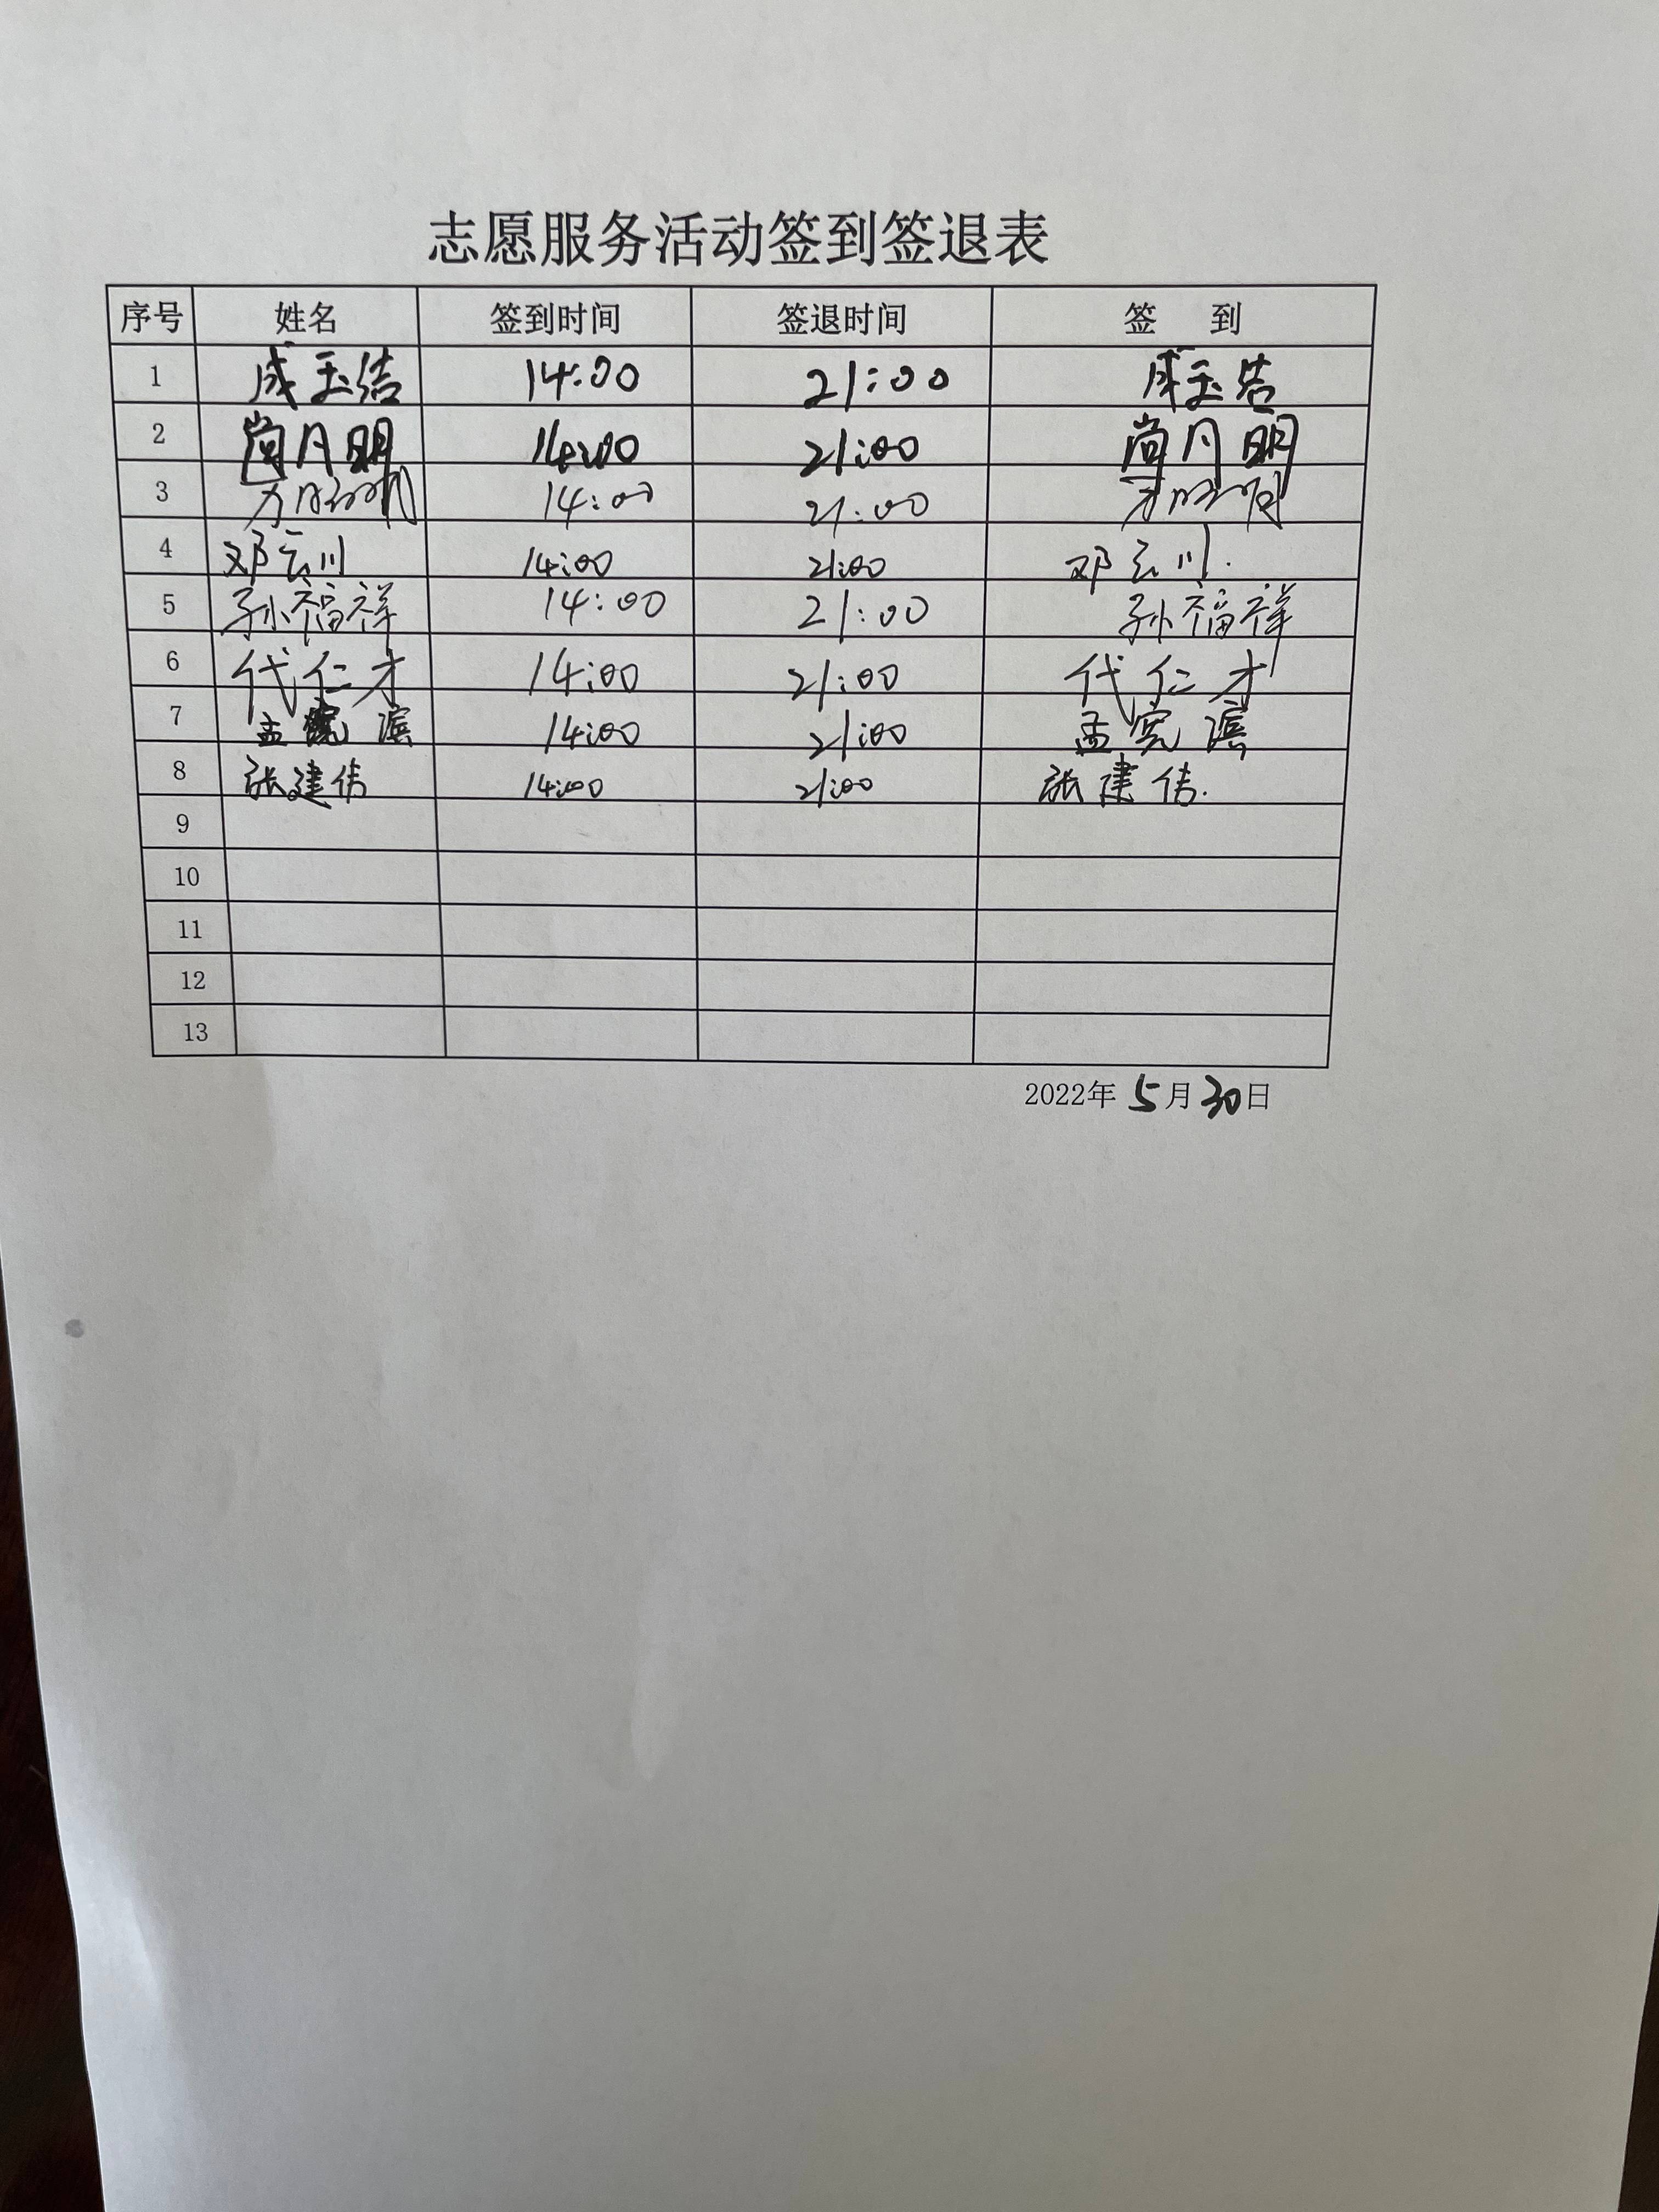 志愿服务活动签到签退表
序号 姓名 签到时间 签退时间 签 到
1 成玉洁 14:00 21:00 成玉洁
2 尚月明 14:00 21:00 尚月明
3 14:00 21:00
4 邓云川 14:00 21:00 邓云川.
5 孙福祥 14:00 21:00 孙福祥
6 代仁才 14:00 21:00 代仁才
7 孟宪滨 14:00 21:00 孟宪滨
8 张建伟 14:00 21:00 张建伟.
9
10
11
12
13
2022年5月30日